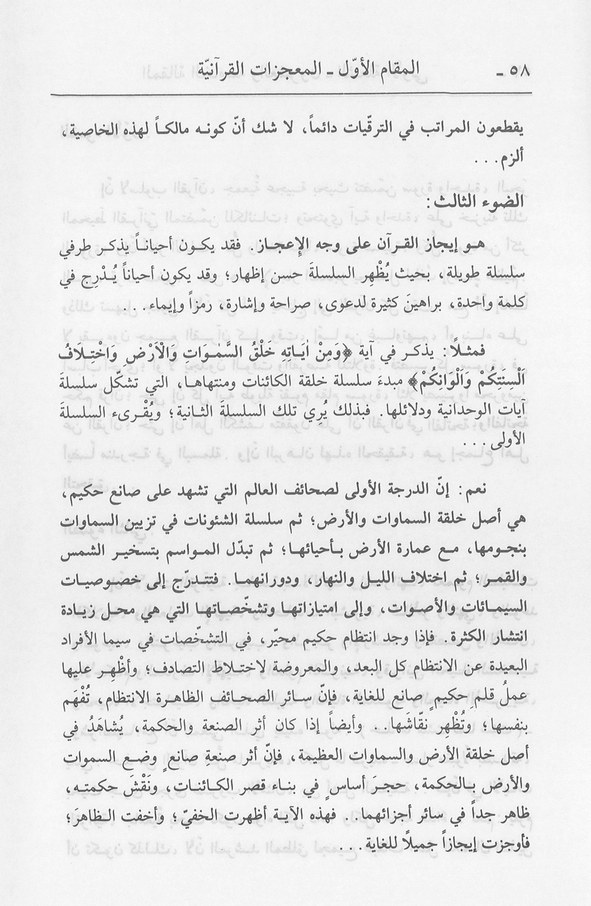 ٥٨ - المقام الأوّل - المعجزات القرآنيّة
يقطعون المراتب في الترقّيات دائماً، لا شك أنّ كونه مالكاً لهذه الخاصية،
ألزم...
الضوء الثالث:
هو إيجاز القرآن على وجه الإعجاز. فقد يكون أحياناً يذكر طرفي
سلسلة طويلة، بحيث يُظْهِر السلسلةَ حسن إظهار؛ وقد يكون أحياناً يُدْرِج في
كلمة واحدة، براهينَ كثيرة لدعوى، صراحة وإشارة، رمزاً وإيماء...
فمثلاً: يذكر في آية ﴿وَمِنْ اٰيَاتِهِ خَلْقُ السَّمٰوَاتِ وَالْاَرْضِ وَاخْتِلَافُ
اَلْسِنَتِكُمْ وَاَلْوَانِكُمْ﴾ مبدءَ سلسلة خلقة الكائنات ومنتهاها، التي تشكّل سلسلةَ
آيات الوحدانية ودلائلها. فبذلك يُرِي تلك السلسلةَ الثانية؛ ويُقْرِىء السلسلةَ
الأولى...
نعم: إنّ الدرجة الأولى لصحائف العالم التي تشهد على صانع حكيم،
هي أصل خلقة السماوات والأرض؛ ثم سلسلة الشئونات في تزيين السماوات
بنجومها، مع عمارة الأرض بأحيائها؛ ثم تبدّل المواسم بتسخير الشمس
والقمر؛ ثم اختلاف الليل والنهار، ودورانهما. فتتدرّج إلى خصوصيات
السيمائات والأصوات، وإلى امتيازاتها وتشخّصاتها التي هي محل زيادة
انتشار الكثرة. فإذا وجد انتظام حكيم محيّر، في التشخّصات في سيما الأفراد
البعيدة عن الانتظام كل البعد، والمعروضة لاختلاط التصادف؛ وأظْهِر عليها
عملُ قلمِ حكيمٍ صانع للغاية، فإنّ سائر الصحائف الظاهرة الانتظام، تُفْهَم
بنفسها؛ وتُظْهِر نقّاشَها.. وأيضاً إذا كان أثر الصنعة والحكمة، يُشاهَدُ في
أصل خلقة الأرض والسماوات العظيمة، فإنّ أثر صنعةِ صانعٍ وضع السموات
والأرض بالحكمة، حجرَ أساسٍ في بناء قصر الكائنات، ونَقْشَ حكمته،
ظاهر جداً في سائر أجزائهما.. فهذه الآية أظهرت الخفيّ؛ وأخفت الظاهرَ؛
فأوجزت إيجازاً جميلاً للغاية...